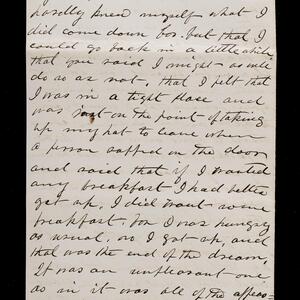 hardly knew myself what I
did come down for. but that I
could go back in a little while
that you said I might as well
do as as not, that I felt that
I was in a tight place and
was just on the point of taking
up my hat to leave when
a person rapped on the door
and said that if I wanted
any breakfast I had better
get up, I did want some
breakfast. for I was hungry
as usual. so I got up, and
that was the end of the dream,
It was an unpleasant one
as in it was all of the appear-